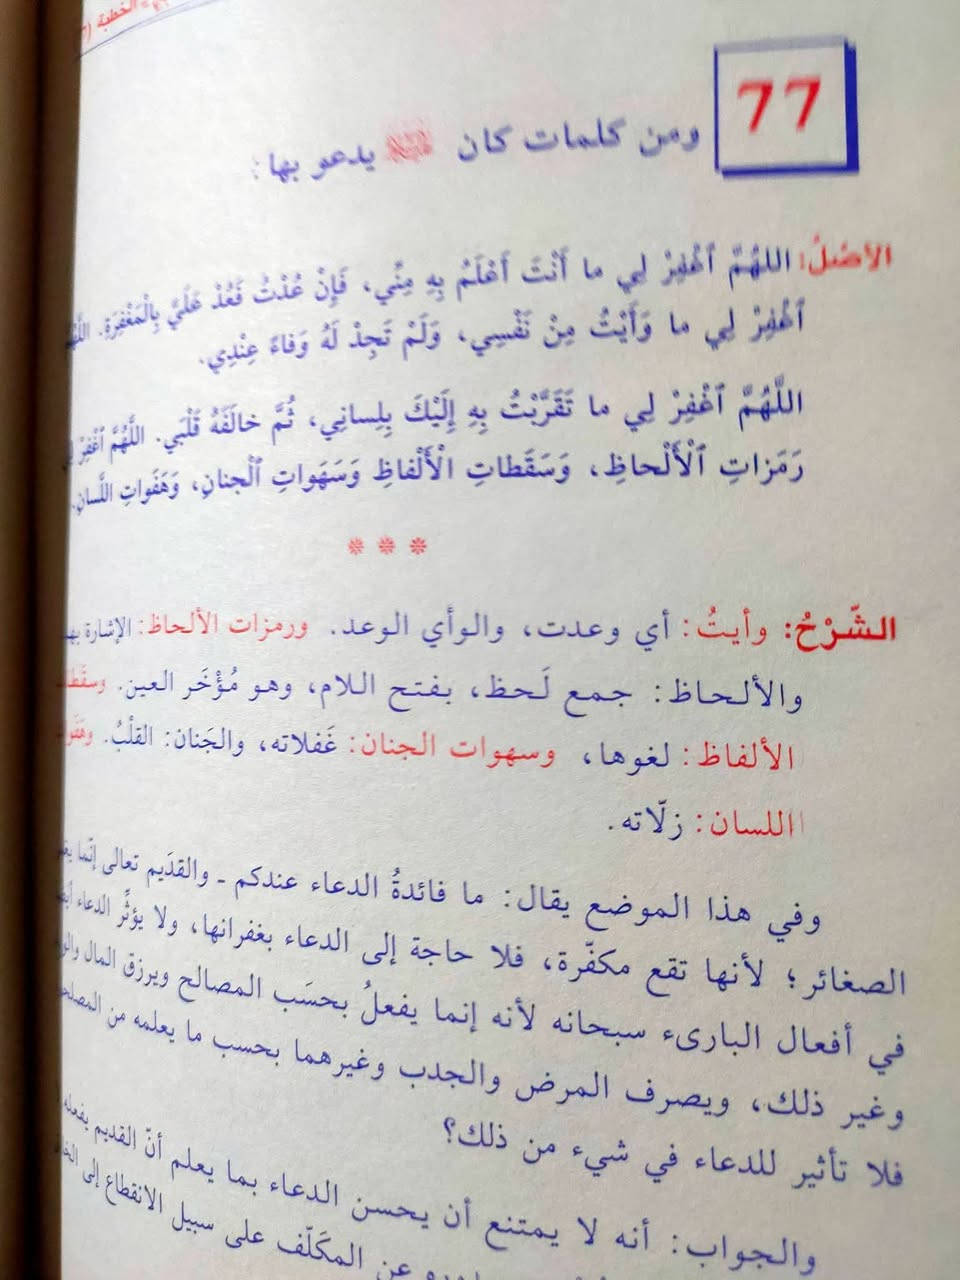 الخطبة
77
ومن كلمات كان يدعو بها:
الأصْلُ: اللهُمَّ ٱغْفِرْ لِي ما أَنْتَ أَعْلَمُ بِهِ مِنِّي، فَإِنْ عُدْتُ فَعُدْ عَلَيَّ بِالْمَغْفِرَةِ.
ٱغْفِرْ لِي ما وَأَيْتُ مِنْ نَفْسِي، وَلَمْ تَجِدْ لَهُ وَفاءً عِنْدِي.
اللَّهُمَّ ٱغْفِرْ لِي ما تَقَرَّبْتُ بِهِ إِلَيْكَ بِلِسانِي، ثُمَّ خالَفَهُ قَلْبي. اللَّهُمَّ اغْفِرْ
رَمَزاتِ ٱلْأَلْحاظِ، وَسَقَطاتِ الْأَلْفاظِ وَسَهَواتِ ٱلْجنانِ، وَهَفَواتِ اللَّسانِ.
الشّرْحُ: وأيتُ: أي وعدت، والوأي الوعد. ورمزات الألحاظ: الإشارة
والألحاظ: جمع لَحظ، بفتح اللام، وهو مُؤْخَر العين.
الألفاظ: لغوها، وسهوات الجنان: غَفلاته، والجَنان: القلْبُ.
اللسان: زلّاته.
وفي هذا الموضع يقال: ما فائدةُ الدعاء عندكم ـ والقدَيم تعالى إنّما
الصغائر؛ لأنها تقع مكفّرة، فلا حاجة إلى الدعاء بغفرانها، ولا يؤثِّر الدعاء
في أفعال البارىء سبحانه لأنه إنما يفعلُ بحسَب المصالح ويرزق المال
وغير ذلك، ويصرف المرض والجدب وغيرهما بحسب ما يعلمه من
فلا تأثير للدعاء في شيء من ذلك؟
والجواب: أنه لا يمتنع أن يحسن الدعاء بما يعلم أنّ القديم يفعله
عن المكَلّف على سبيل الانقطاع إلى